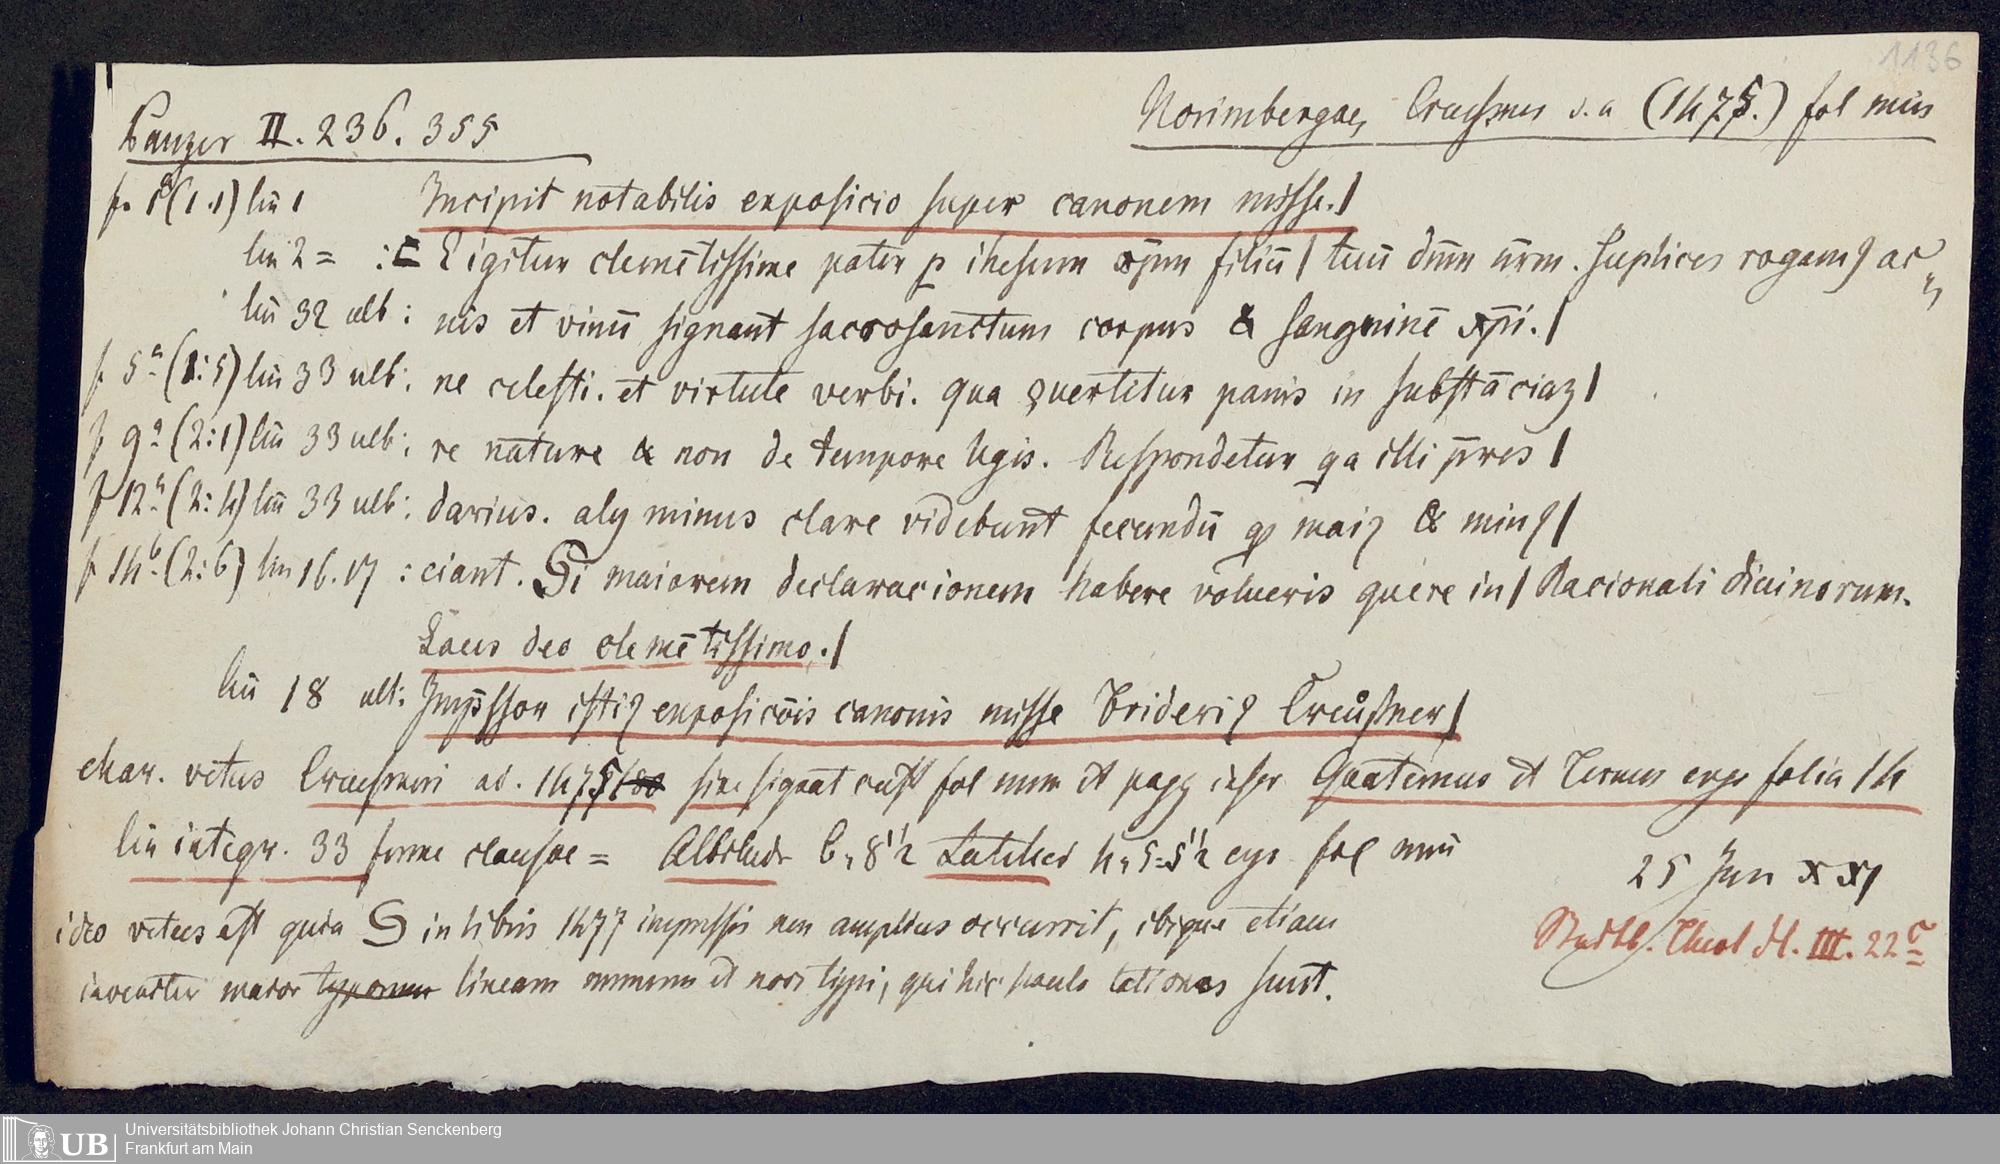 1136
Panzer II. 236. 355
Norimbergae, Creussner s. a (1475.) fol min
f. 1a (1.1) lin 1 Incipit notabilis exposicio super canonem misse./
lin 2 = : Eigitur clemētissime pater p ihesum xp̄m filiū / tuū dn̄m nr̄m. suplices rogamꝰ ac
lin 32 ult: nis et vinū signant sacrosanctum corpus & sanguinē xp̄i./
f 5a (1:5) lin 33 ult: ne celesti. et virtute verbi. qua ꝯuertitur panis in substāciaz /
f 9a (2:1) lin 33 ult: re nature & non de tempore legis. Respondetur qa illi pr̄es /
f 12a (2:4) lin 33 ult: darius. alij minus clare videbunt secundū ꝙ maiꝰ & minꝰ /
f 14b (2:6) lin 16. 17 : ciant. Si maiorem declaracionem habere volueris quere in / Racionali diuinorum.
Laus deo clemētissimo./
lin 18 ult: Imp̄ssor istiꝰ exposicōis canonis misse Frideriꝰ Creůsner /
char. vetus Creussneri ad. 1475 sine signat cust fol num et pagg inscr Quaternus et Ternus ergo folia 14
lin integr. 33 forme clausae = 8 1/2 5 1/2 fol min
25 Jun xxi
ideo vetus est quia S in libris 1477 impressis non amplius occurrit, ibique etiam
Stadtb. Theol St. III. 22c
maior linearum numerus et novi typi, qui hic paulo sunt.
Universitätsbibliothek Johann Christian Senckenberg
UB Frankfurt am Main